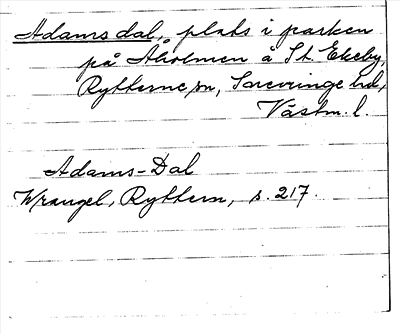 Adams dal, plats i parken
på Åholmen å St. Ekeby,
Rytterne sn, Snevringe hd,
Västm. l.
Adams-Dal
Wrangel, Ryttern, s. 217.